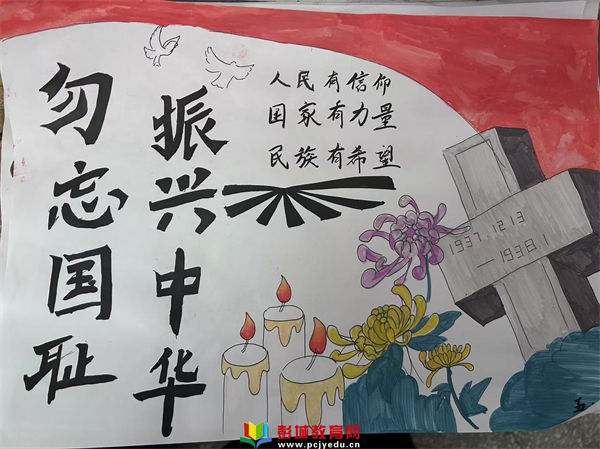 勿忘国耻
振兴中华
人民有信仰
国家有力量
民族有希望
1937.12.13
—1938.1
彭城教育网
www.pcjyedu.cn